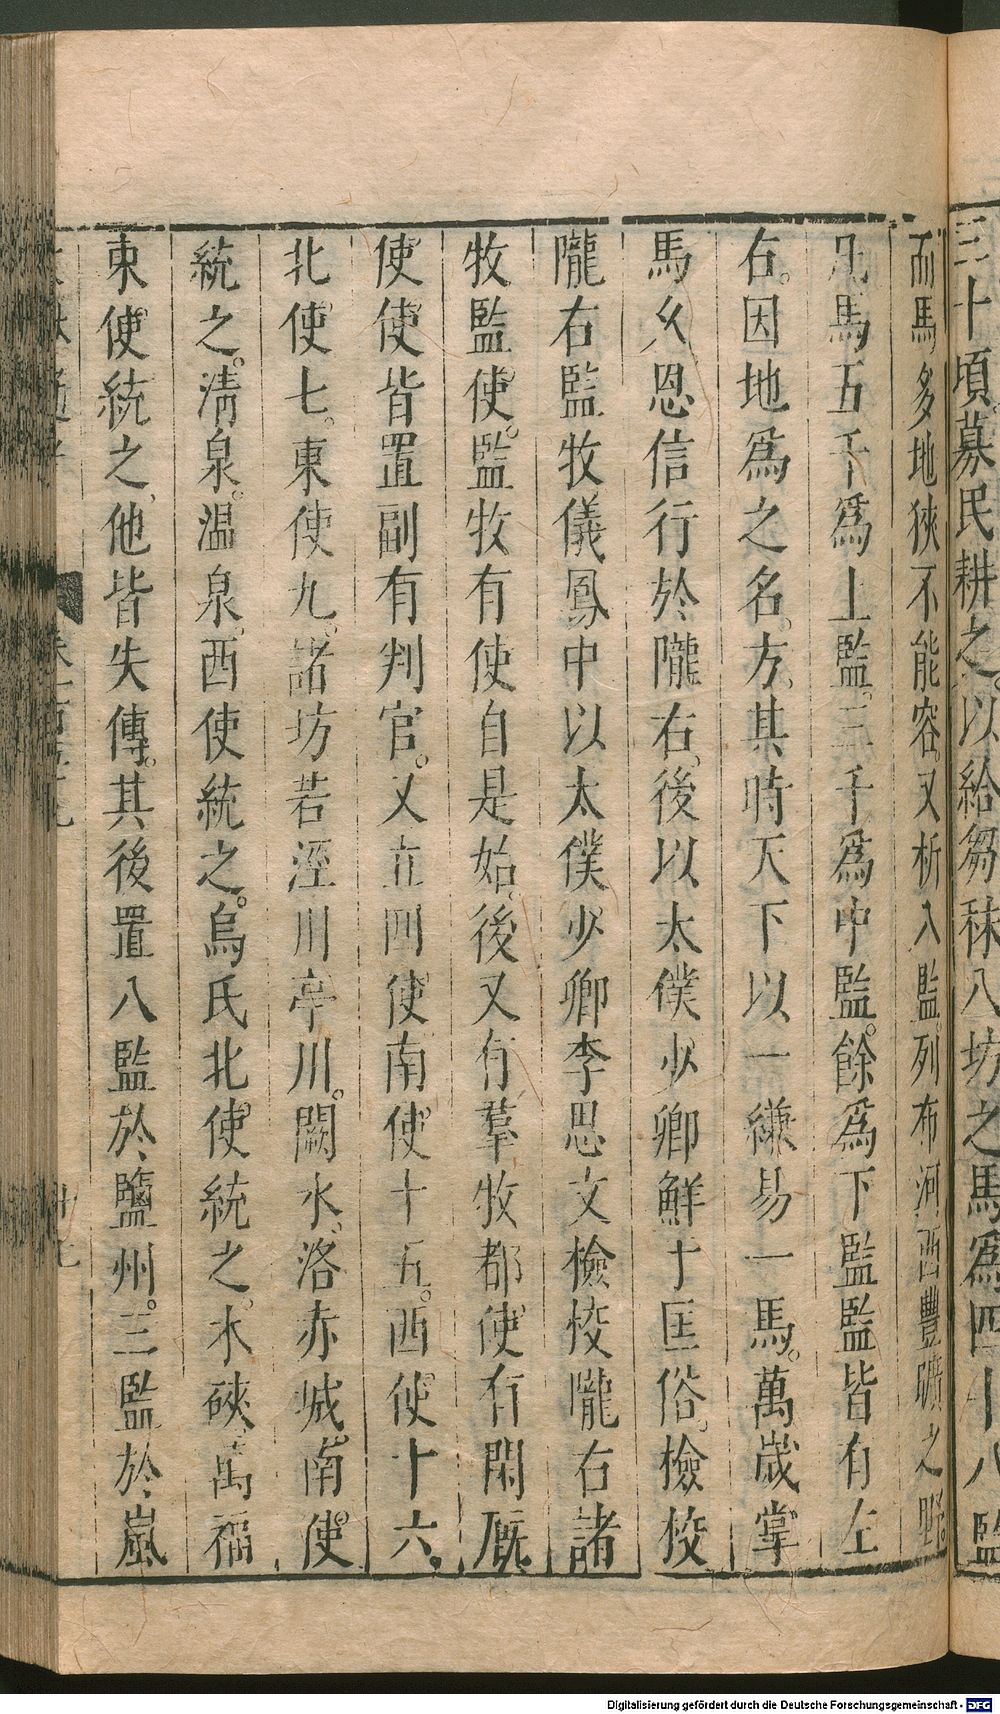 三十頃。募民耕之。以給芻秣八坊之馬爲四十八監
而馬多地狹不能容。又析八監列布河西豐曠之野。
凡馬五千爲上監。三千爲中監。餘爲下監監皆有左
右。因地爲之名。方。其時天下以一縑易一馬。萬歲掌
馬久恩信行於隴右。後以太僕少卿鮮于匡俗。檢挍
隴右監牧儀鳳中以太僕少卿李思文檢挍隴右諸
牧監使。監牧有使自是始。後又有羣牧都使有閑厩
使使皆置副有判官。又立四使南使十五。西使十六。
北使七。東使九。諸坊若涇川亭川。闕水、洛赤城。南使
統之。淸泉。温泉。西使統之。烏氏北使統之。木硤、萬福
東使統之。他皆失傳。其後置八監於鹽州。三監於嵐
Digitalisierung gefördert durch die Deutsche Forschungsgemeinschaft - DFG